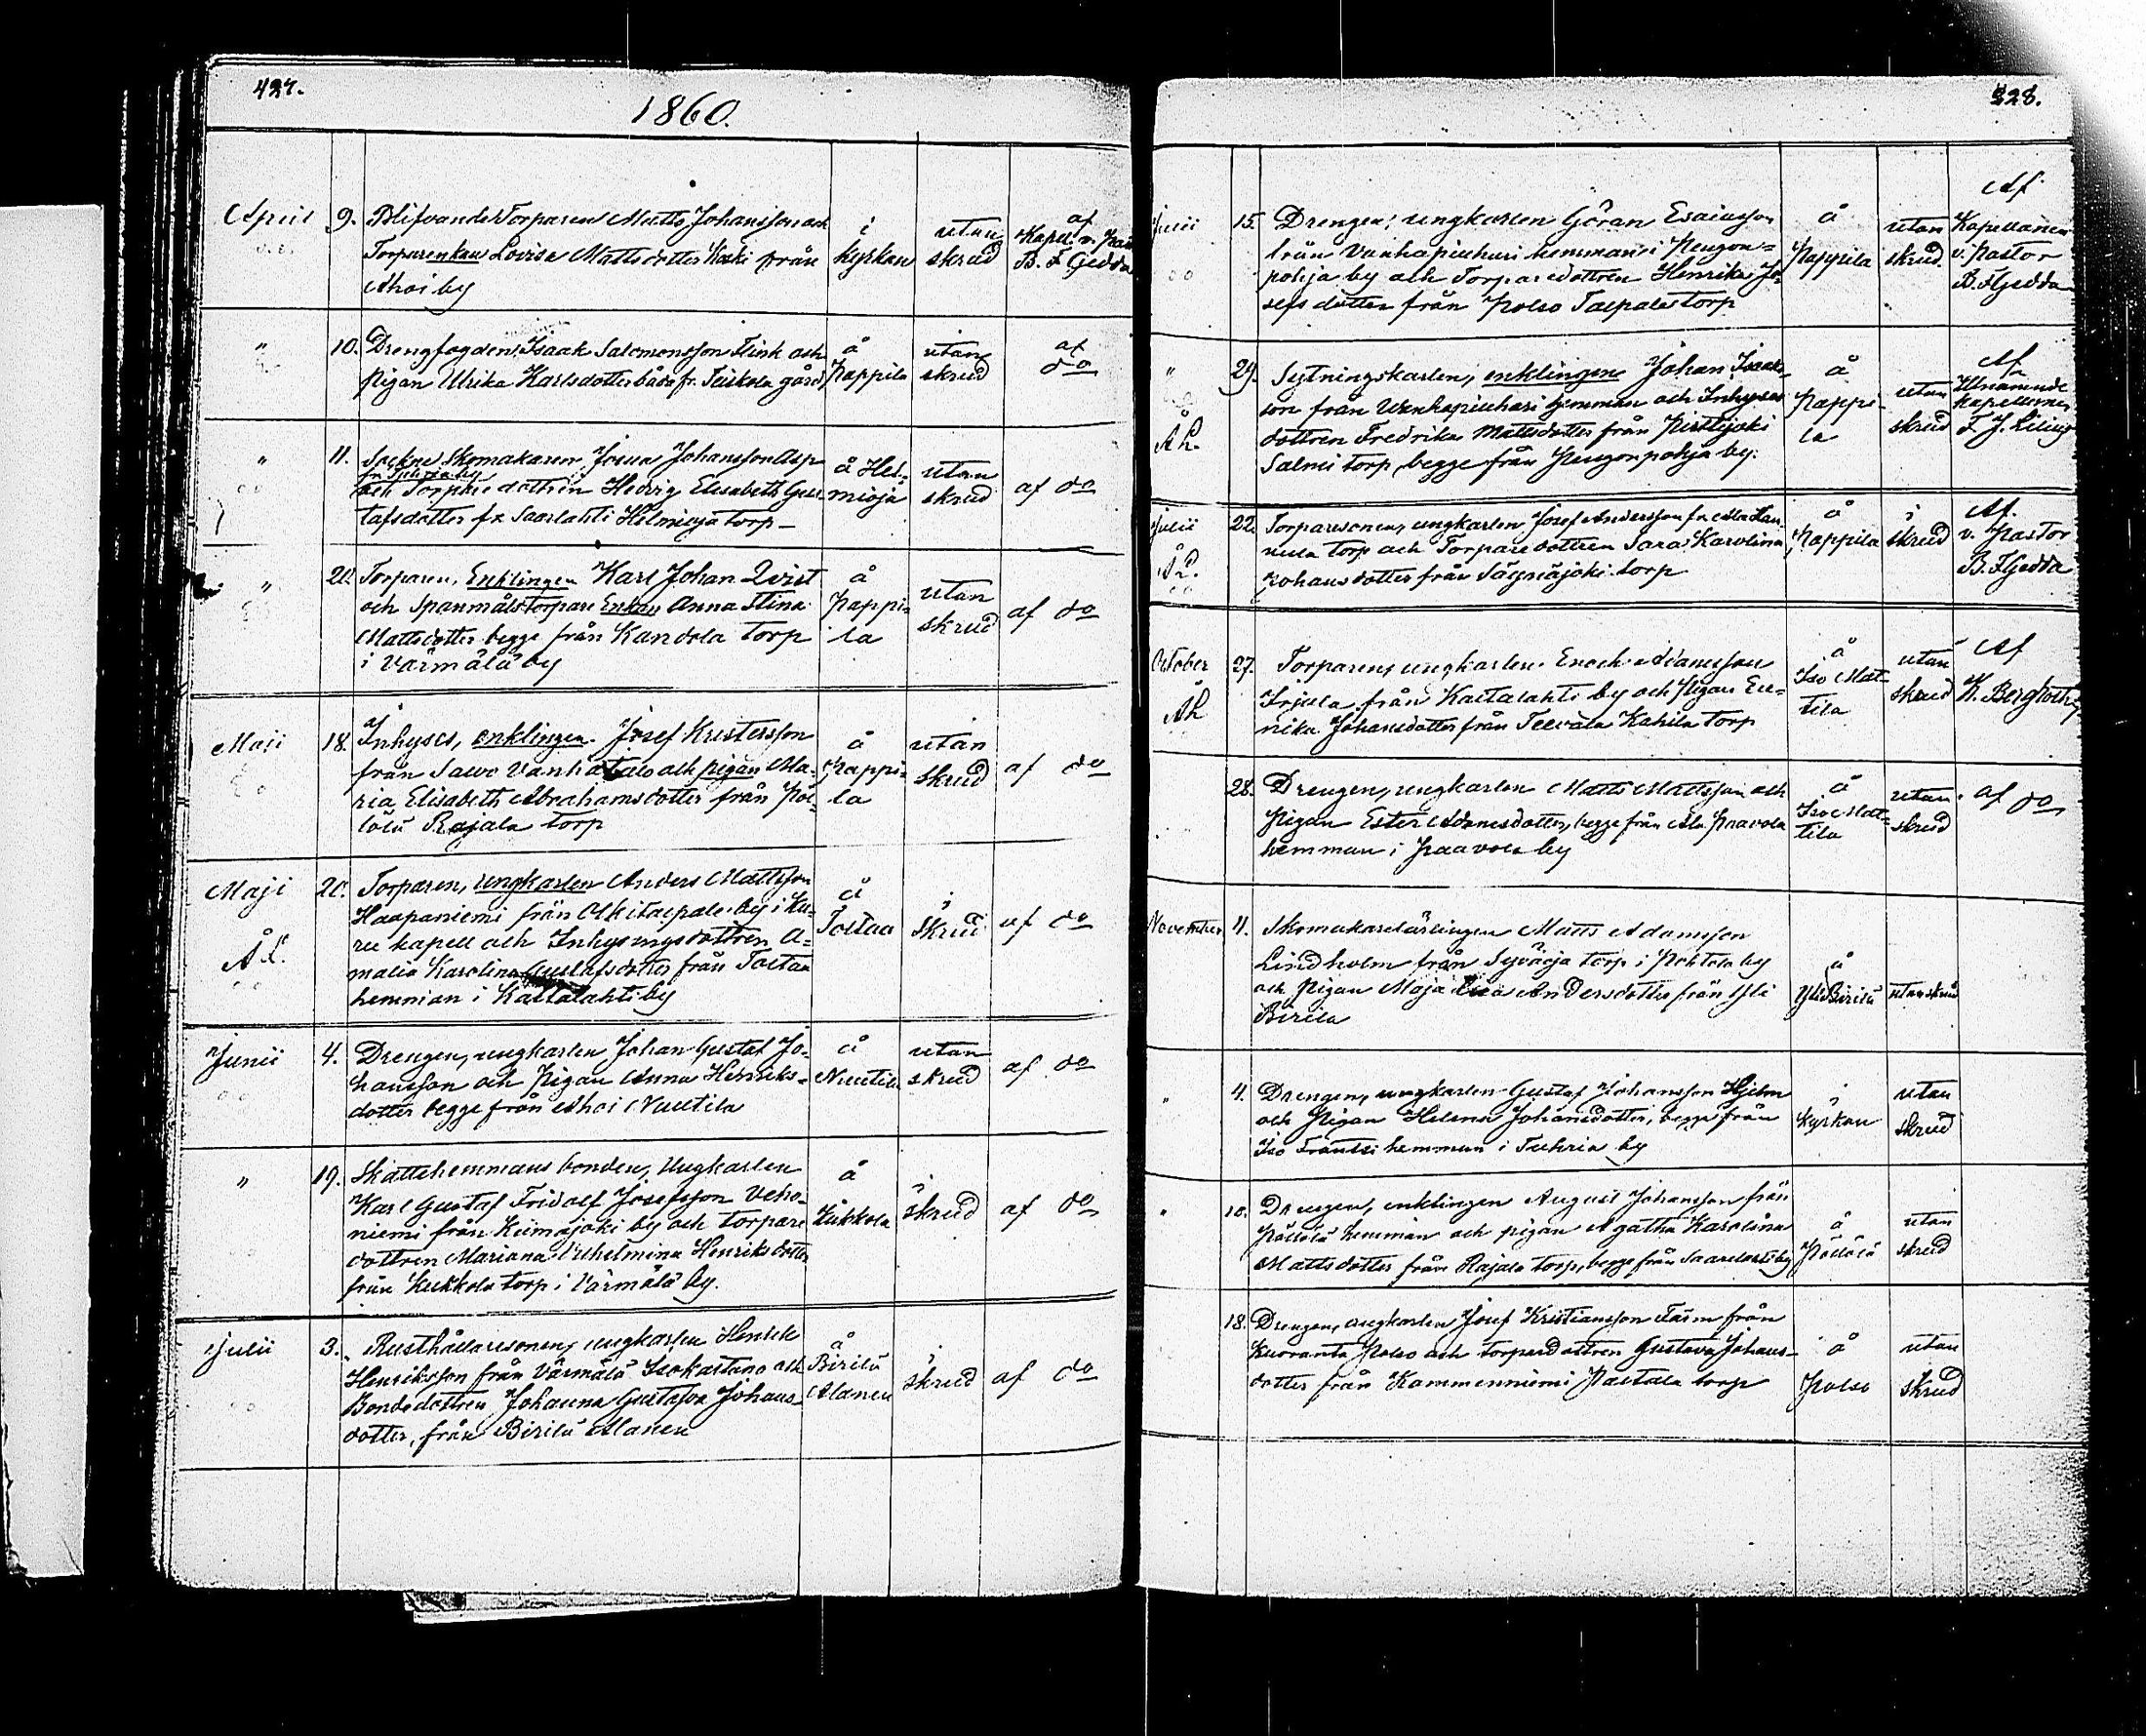 427.
1860.
April 9. Blifvande Torparen Matts Johansson och
Torparenkan Lovisa Mattsdotter Koski från
Ahoi by
i kyrkan
utan skrud
af Kapell. v. Past. B. F. Gjedda
" 10. Drengfogden, Isaak Salomonsson Flink och
pigan Ulrika Karlsdotter båda fr. Teiskola gård
å Pappila
utan skrud
af do
" 11. Sockne Skomakaren Josua Johansson Asp
och Torpare dottren Hedvig Elisabeth Gus-
tafsdotter fr Saarlahti Helmioja torp
å Hel-
mioja
utan skrud
af do
" 20. Torparen, Enklingen Karl Johan Qvist
och Spanmåls torpare Enkan Anna Stina
Mattsdotter begge från Kandola torp
i Värmälä by
å
Pappi-
la
utan skrud
af do
Maji 18. Inhyses, enklingen Josef Kristersson
från Savo Vanhatalo och pigan Ma-
ria Elisabeth Abrahamsdotter från Pöl-
lölä Rajala torp
å
Pappi-
la
utan skrud
af do
Maji 20. Torparen, ungkarlen Anders Mattsson
Haapaniemi från Olkitaipale by i Ku-
ru kapell och Inhysingsdottren A-
malia Karolina Gustafsdotter från Toltaa
hemman i Kaitalahti by
Å L.
å
Toltaa
i
skrud
af do
Junii 4. Drengen, ungkarlen Johan Gustaf Jo-
hansson och Pigan Anna Henriks-
dotter begge från Ahoi Nuutila
å
Nuutila
utan
skrud
af do
" 19. Skattehemmans bonden, Ungkarlen
Karl Gustaf Fridolf Josefsson Veho-
niemi från Keimäjoki by och torpare
dottren Mariana Vilhelmina Henriksdotter
från Kukkola torp i Värmälä by.
å
Kukkola
i
skrud
af do
Julii 3. Rusthållaresonen, ungkarlen Henrik
Henriksson från Värmälä Isokartano och
Bondedottren Johanna Gustafva Johans-
dotter, från Birilä Alanen
å
Birilä
Alanen
i
skrud
af do
328.
Junii 15. Drengen, ungkarlen Göran Esaiasson
från Vanhapiuhari hemman i Pengon-
pohja by och Torparedottren Henrika Jo-
sefsdotter från Polso Taipale torp
å
Pappila
utan
skrud
Af
Kapellanen
v. Pastor
B. F. Gjedda
" 29. Sytningskarlen, enklingen Johan Isaaks-
son från Wanhapiuhari hemman och Inhyses
dottren Fredrika Mattsdotter från Pirttijoki
Salmi torp, begge från Pengonpohja by.
å
Pappi-
la
utan
skrud
Af
Kapellanen
Julii 22. Torparesonen, ungkarlen Josef Andersson fr Ala Han-
nula torp och Torparedottren Sara Karolina
Johansdotter från Säynäjoki torp
Å L.
å
Pappila
i
skrud
Af
v. Pastor
B. F. Gjedda
October 27. Torparen, ungkarlen Enoch Adamsson
Irjala från Kaitalahti by och Pigan Eu-
nika Johansdotter från Teevala Kahila torp
å
Iso Mat-
tila
utan
skrud
Af
28. Drengen, ungkarlen Matts Mattsson och
Pigan Ester Adamsdotter, begge från Ala Paavola
hemman i Paavola by
å
Iso Mat-
tila
utan
skrud
af do
November 11. Skomakarelärlingen Matts Adamsson
Lindholm från Syväoja torp i Pohtola by
och Pigan Maja Lisa Andersdotter från Yli
Birila
å
Yli Birilä
utan skrud
" 4. Drengen, ungkarlen Gustaf Johansson Hjelm
och Pigan Helena Johansdotter, begge från
Iso Frantsi hemman i Tuhria by
i
kyrkan
utan
skrud
" 10. Drengen, enklingen August Johansson från
Pöllölä hemman och pigan Agatha Karolina
Mattsdotter från Rajala torp, begge från Saarlahti by
å
Pöllölä
utan
skrud
18. Drengen, ungkarlen Josef Kristiansson Färm från
Kuoranta Polso och torparedottren Gustava Johans-
dotter från Kammenniemi Paltala torp
å
Polso
utan
skrud